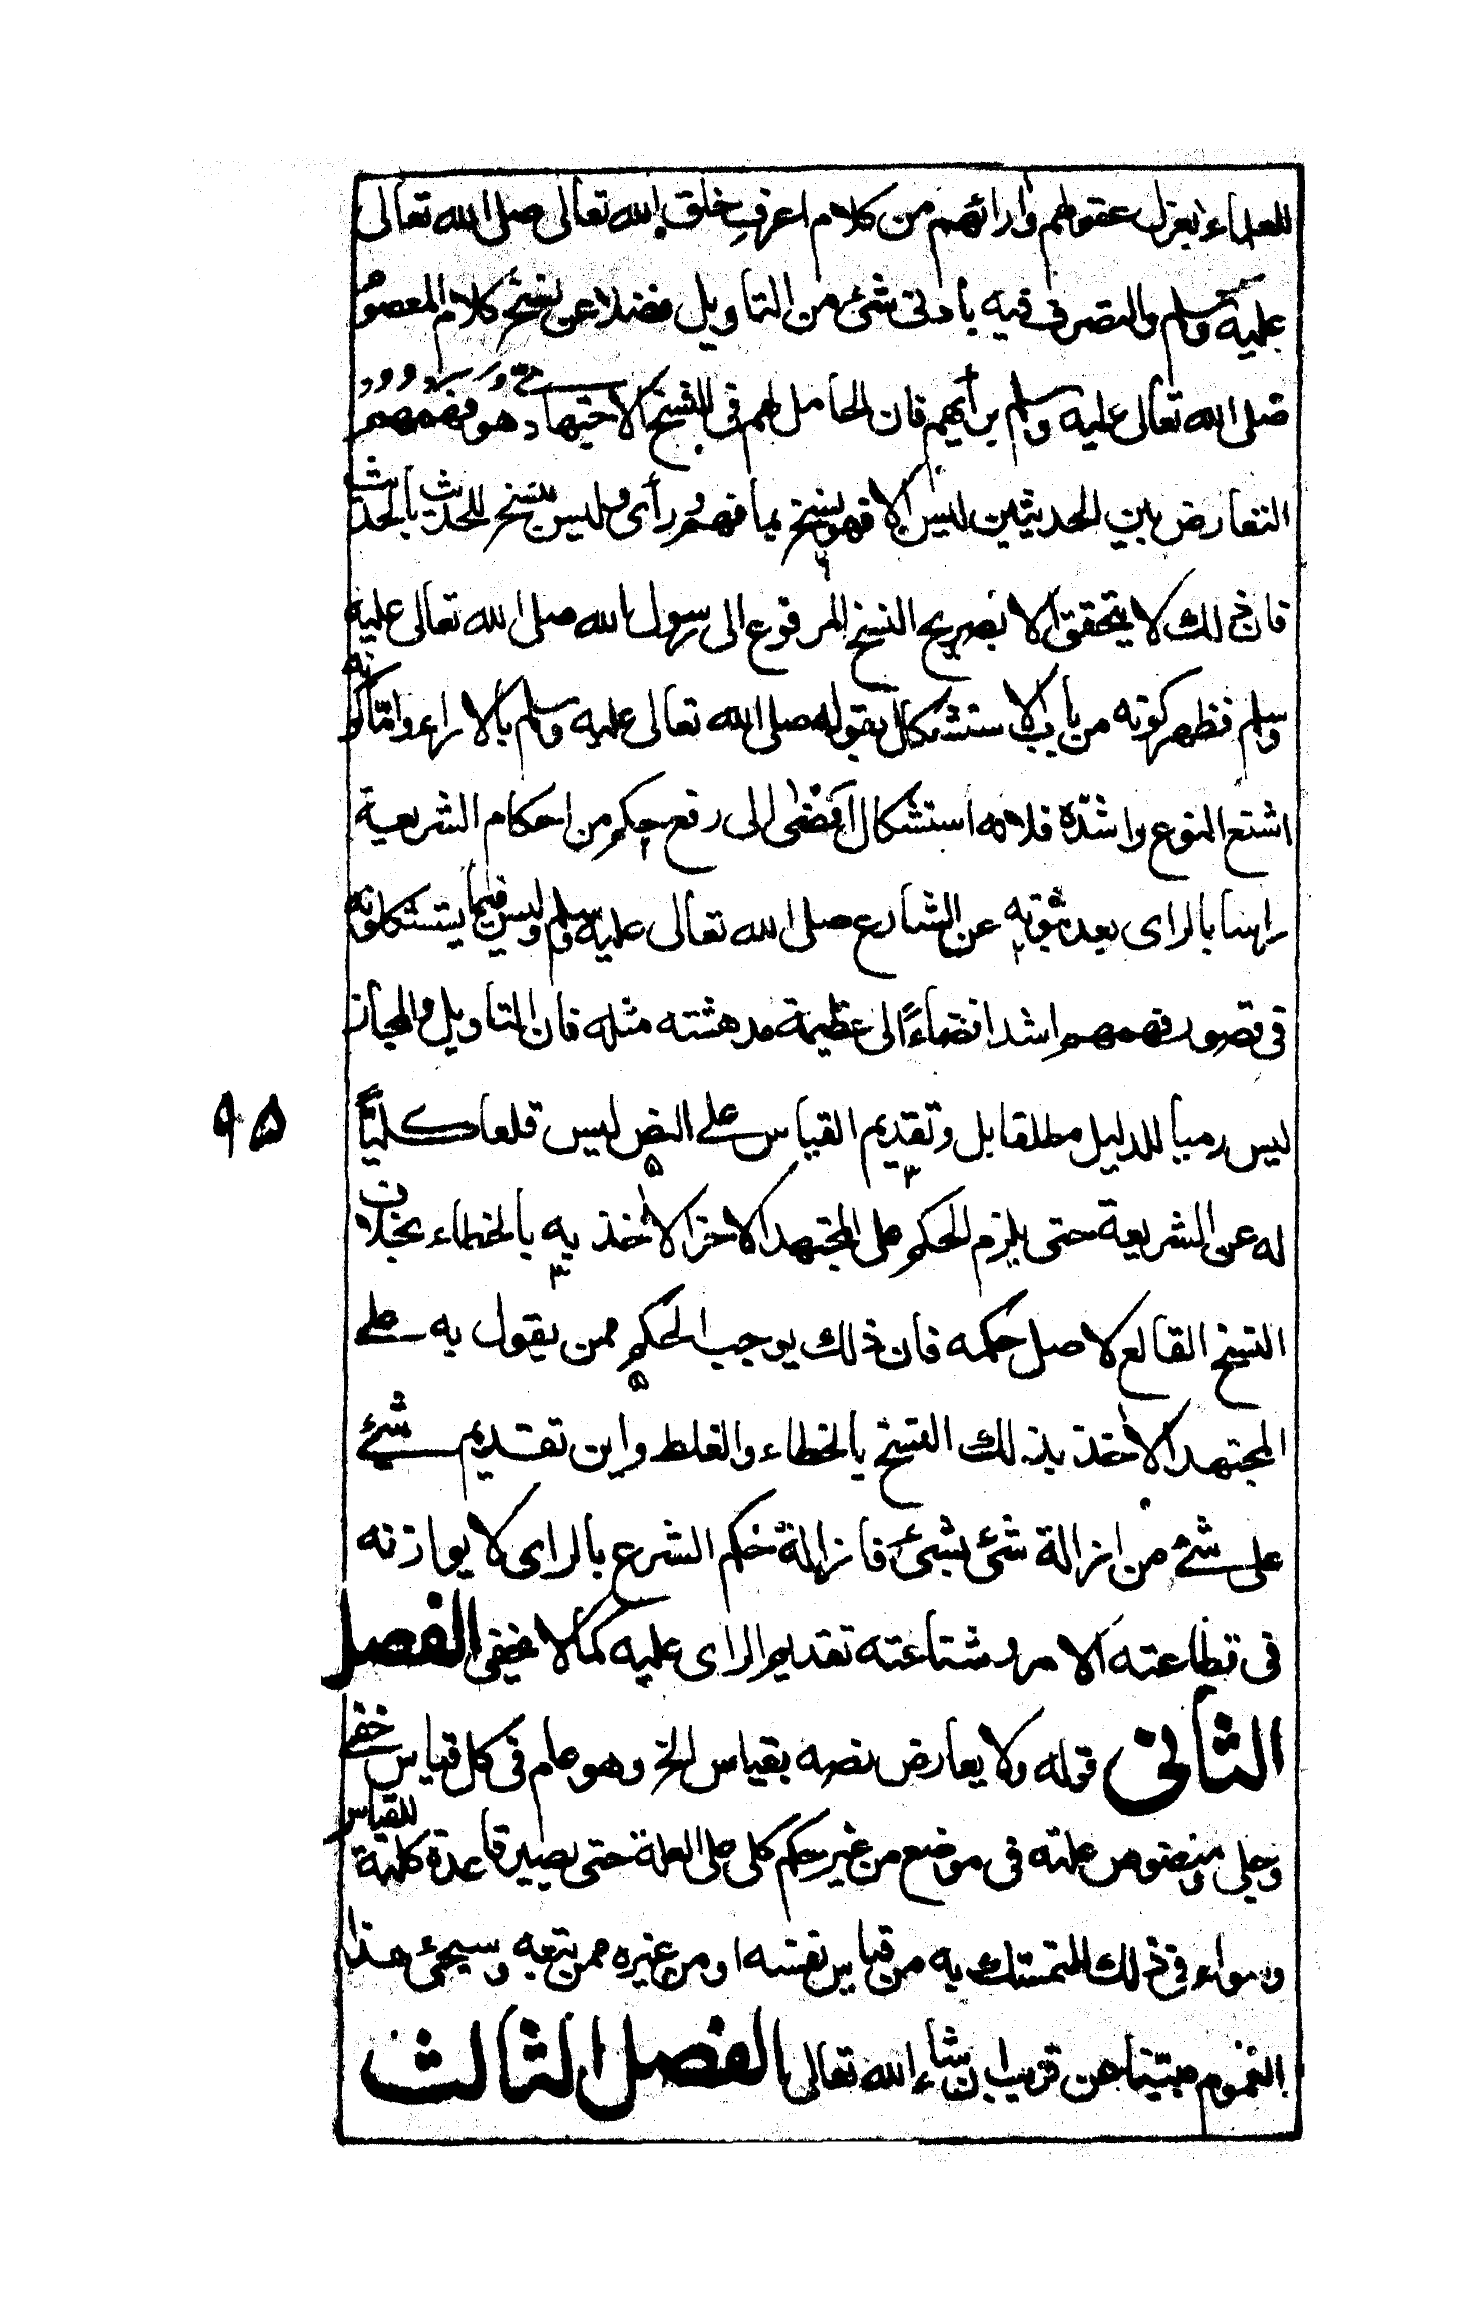 للعلماء بعزل عقولهم وارائهم من كلام اعرف خلق الله تعالى صلى الله تعالى
عليه وسلم والتصرف فيه بادنى شئ من التاويل فضلا عن نسخ كلام المعصوم
صلى الله تعالى عليه وسلم برأيهم فان الحامل لهم فى النسخ الاجتهادى هو فهمهم
التعارض بين الحديثين ليس الا فهو نسخ بما فهم ورأى وليس بنسخ للحديث بالحديث
فان ذلك لا يتحقق الا بصريح النسخ المرفوع الى رسول الله صلى الله تعالى عليه
وسلم فظهر كونه من باب الاستشكال بقوله صلى الله تعالى عليه وسلم بالاراء واما كونه
اشنع النوع واشده فلانه استشكال افضى الى رفع حكم من احكام الشريعة
راسا بالراى بعد ثبوته عن الشارع صلى الله تعالى عليه وسلم وليس فيما يستشكلونه
فى تصور فهمهم اشد افضاءً الى عظيمة مدهشته مثله فان التاويل والمجاز
ليس رميا للدليل مطلقا بل وتقديم القياس على النص ليس قلعا كليّاً
له عن الشريعة حتى يلزم الحكم على المجتهد الاخر الاخذ به بالخطاء بخلاف
النسخ القالع لاصل حكمه فان ذلك يوجب الحكم ممن يقول به على
المجتهد الاخذ بذلك النسخ بالخطاء والغلط واين تقديم شئ
على شئ من ازالة شئ بشئ فازالة حكم الشرع بالراى لا يوازنه
فى فظاعته الامر وشناعته تقديم الراى عليه كما لا يخفى الفصل
الثانى قوله ولا يعارض نصه بقياس الخ وهو عام فى كل قياس خفى
وجلى ومنصوص علته فى موضع من غير حكم كلى على العلة حتى يصير قاعدة كلية للقياس
وسواء فى ذلك المتمسك به من قياس نفسه او من غيره ممن يتبعه وسيجئ هذا
العموم مبينا عن قريب ان شاء الله تعالى الفصل الثالث
٩٥